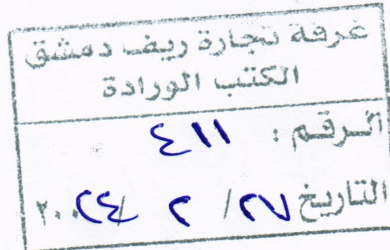 غرفة تجارة ريف دمشق
الكتب الورادة
الرقم : ٤١١
التاريخ ٢٧/ ٢ /٢٠٠٢٤